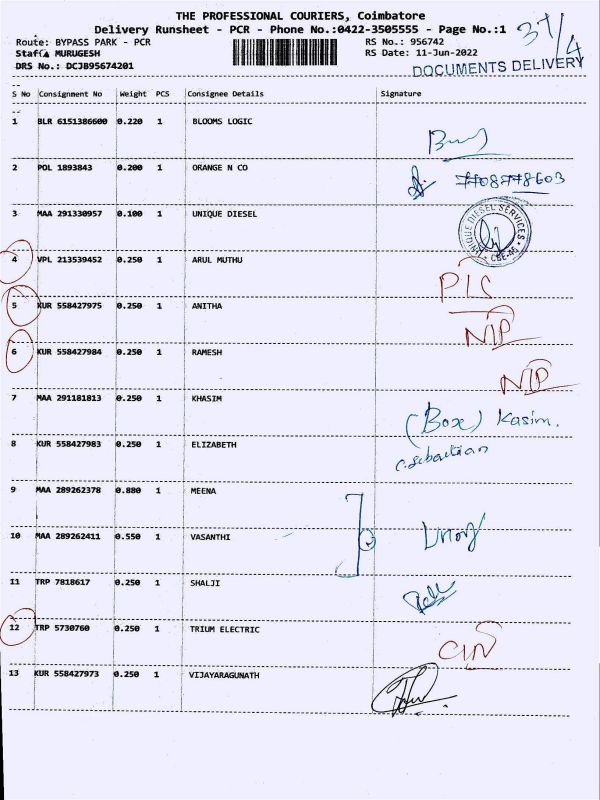 THE PROFESSIONAL COURIERS, Coimbatore
Delivery Runsheet - PCR - Phone No.:0422-3505555 - Page No.:1
37/4
Route: BYPASS PARK - PCR RS No.: 956742
Staff: MURUGESH RS Date: 11-Jun-2022
DRS No.: DCJB95674201 DOCUMENTS DELIVERY
S No Consignment No Weight PCS Consignee Details Signature
1 BLR 6151386600 0.220 1 BLOOMS LOGIC
2 POL 1893843 0.200 1 ORANGE N CO 7708778603
3 MAA 291330957 0.100 1 UNIQUE DIESEL UNIQUE DIESEL SERVICES * CBE-46 *
4 VPL 213539452 0.250 1 ARUL MUTHU
5 KUR 558427975 0.250 1 ANITHA NIP
6 KUR 558427984 0.250 1 RAMESH NIP
7 MAA 291181813 0.250 1 KHASIM (Box) Kasim.
8 KUR 558427983 0.250 1 ELIZABETH C.Sebastian
9 MAA 289262378 0.880 1 MEENA
10 MAA 289262411 0.550 1 VASANTHI
11 TRP 7818617 0.250 1 SHALJI
12 TRP 5730760 0.250 1 TRIUM ELECTRIC
13 KUR 558427973 0.250 1 VIJAYARAGUNATH